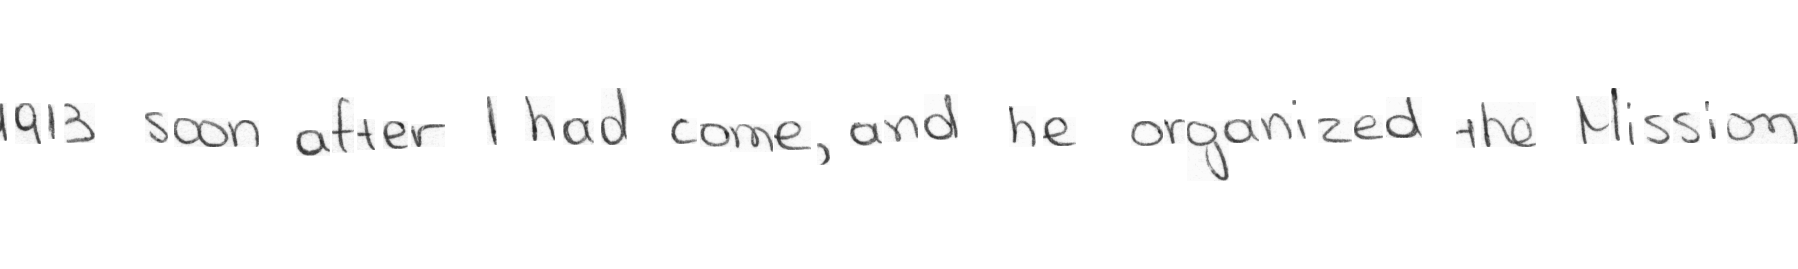 1913 soon after I had come, and he organized the Mission